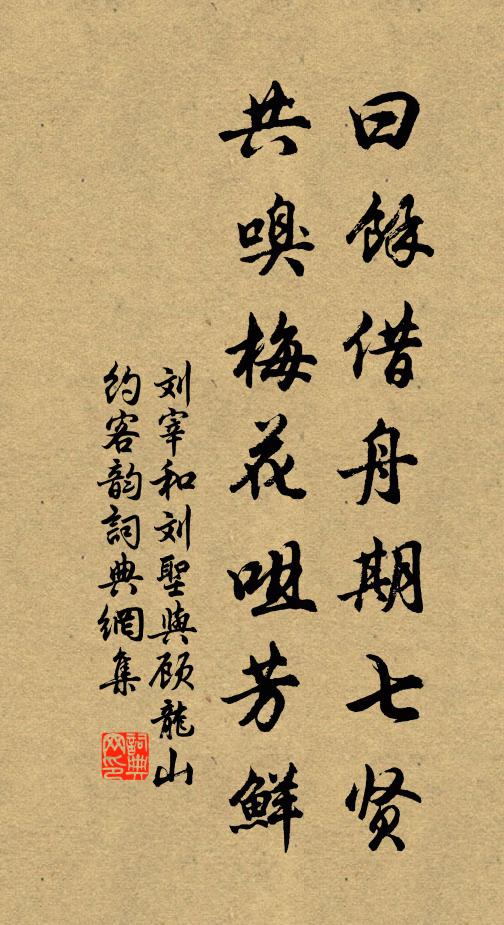 曰餘借舟期七贤
共嗅梅花咀芳鮮
刘宰和刘聖與顾龍山
约客韵詞典網集
詞典
网印